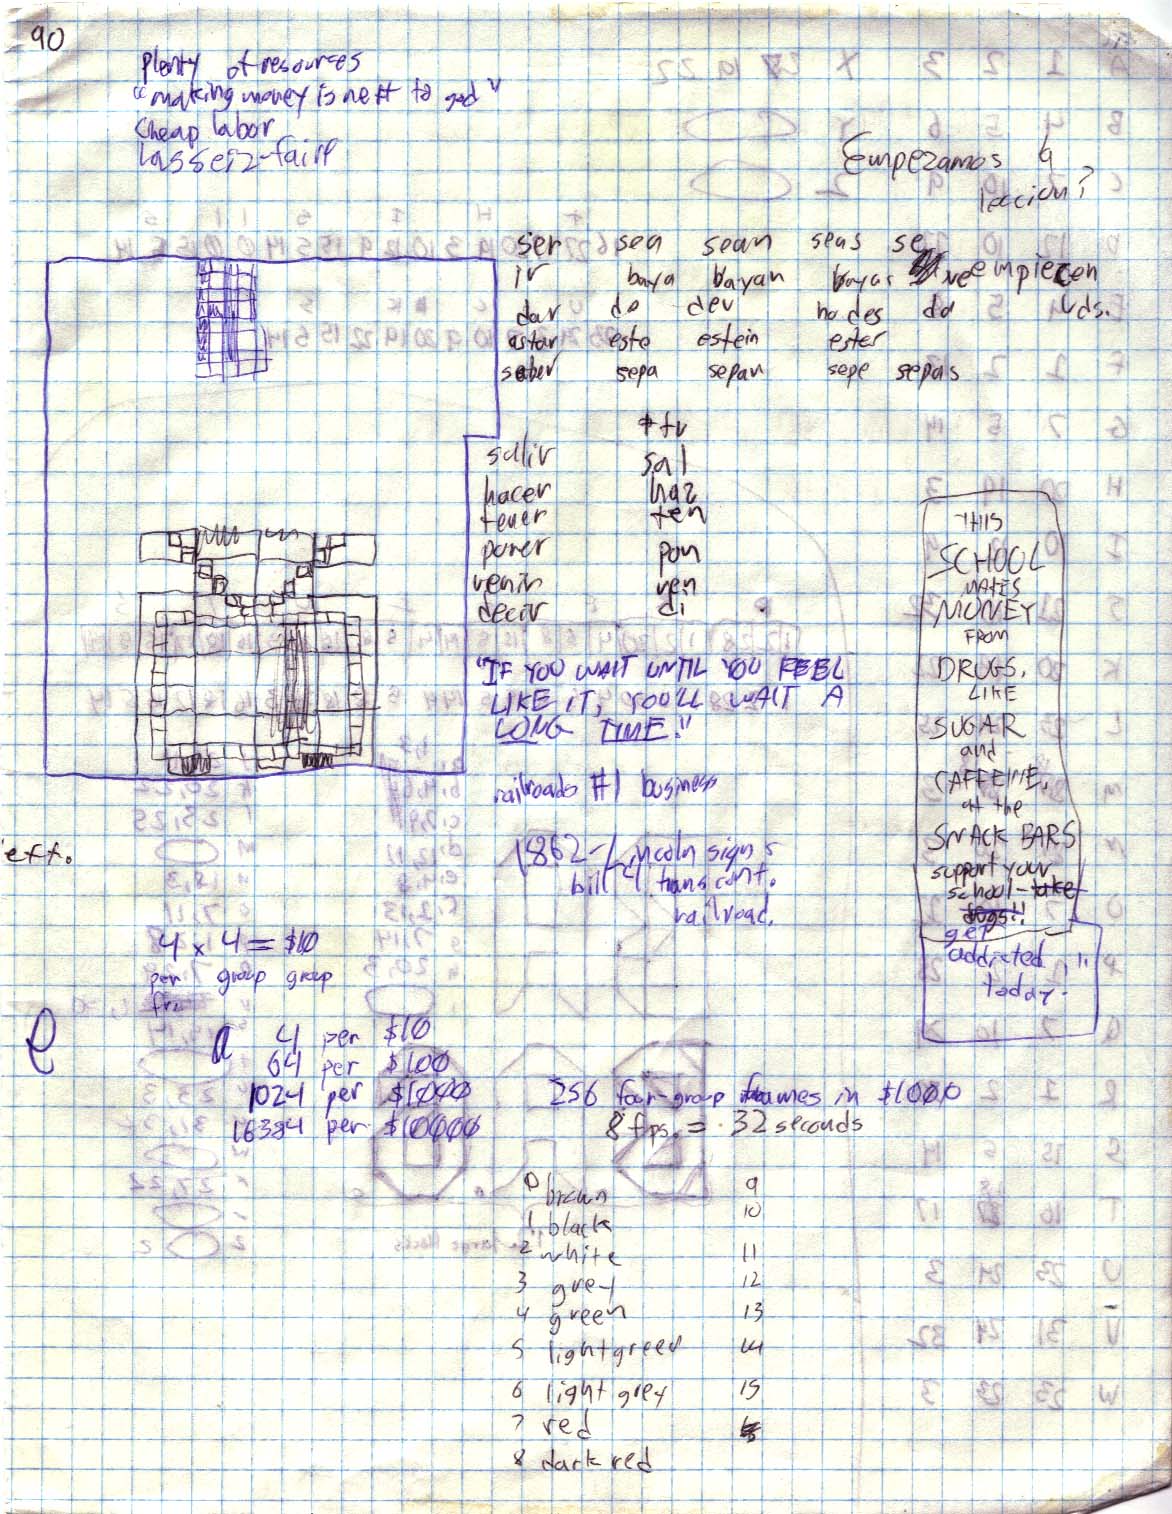 90
plenty of resources
"making money is next to god"
Cheap labor
Lasseiz-faire
Empezamos la
leccion?
ser sea sean seas se
ir baya bayan bayas ve empiecen
dar de dev no des da Uds.
estar este estein ester
saber sepa sepan sepe sepas
tu
salir sal
hacer haz
tener ten
poner pon
venir ven
decir di
"IF YOU WAIT UNTIL YOU FEEL
LIKE IT, YOU'LL WAIT A
LONG TIME!"
railroads #1 business
1862-Lincoln signs
bill 4 trans cont.
railroad.
THIS
SCHOOL
MAKES
MONEY
FROM
DRUGS,
LIKE
SUGAR
and
CAFFEINE,
at the
SNACK BARS
support your
school-take
drugs!!
get
addicted,"
today.
eft.
4 x 4 = $10
per group group
fr.
e a 4 per $10
64 per $100
1024 per $1000
16384 per $10000
256 four-group frames in $1000
8 fps. = 32 seconds
0 brown 9
1 black 10
2 white 11
3 grey 12
4 green 13
5 light green 14
6 light grey 15
7 red
8 dark red